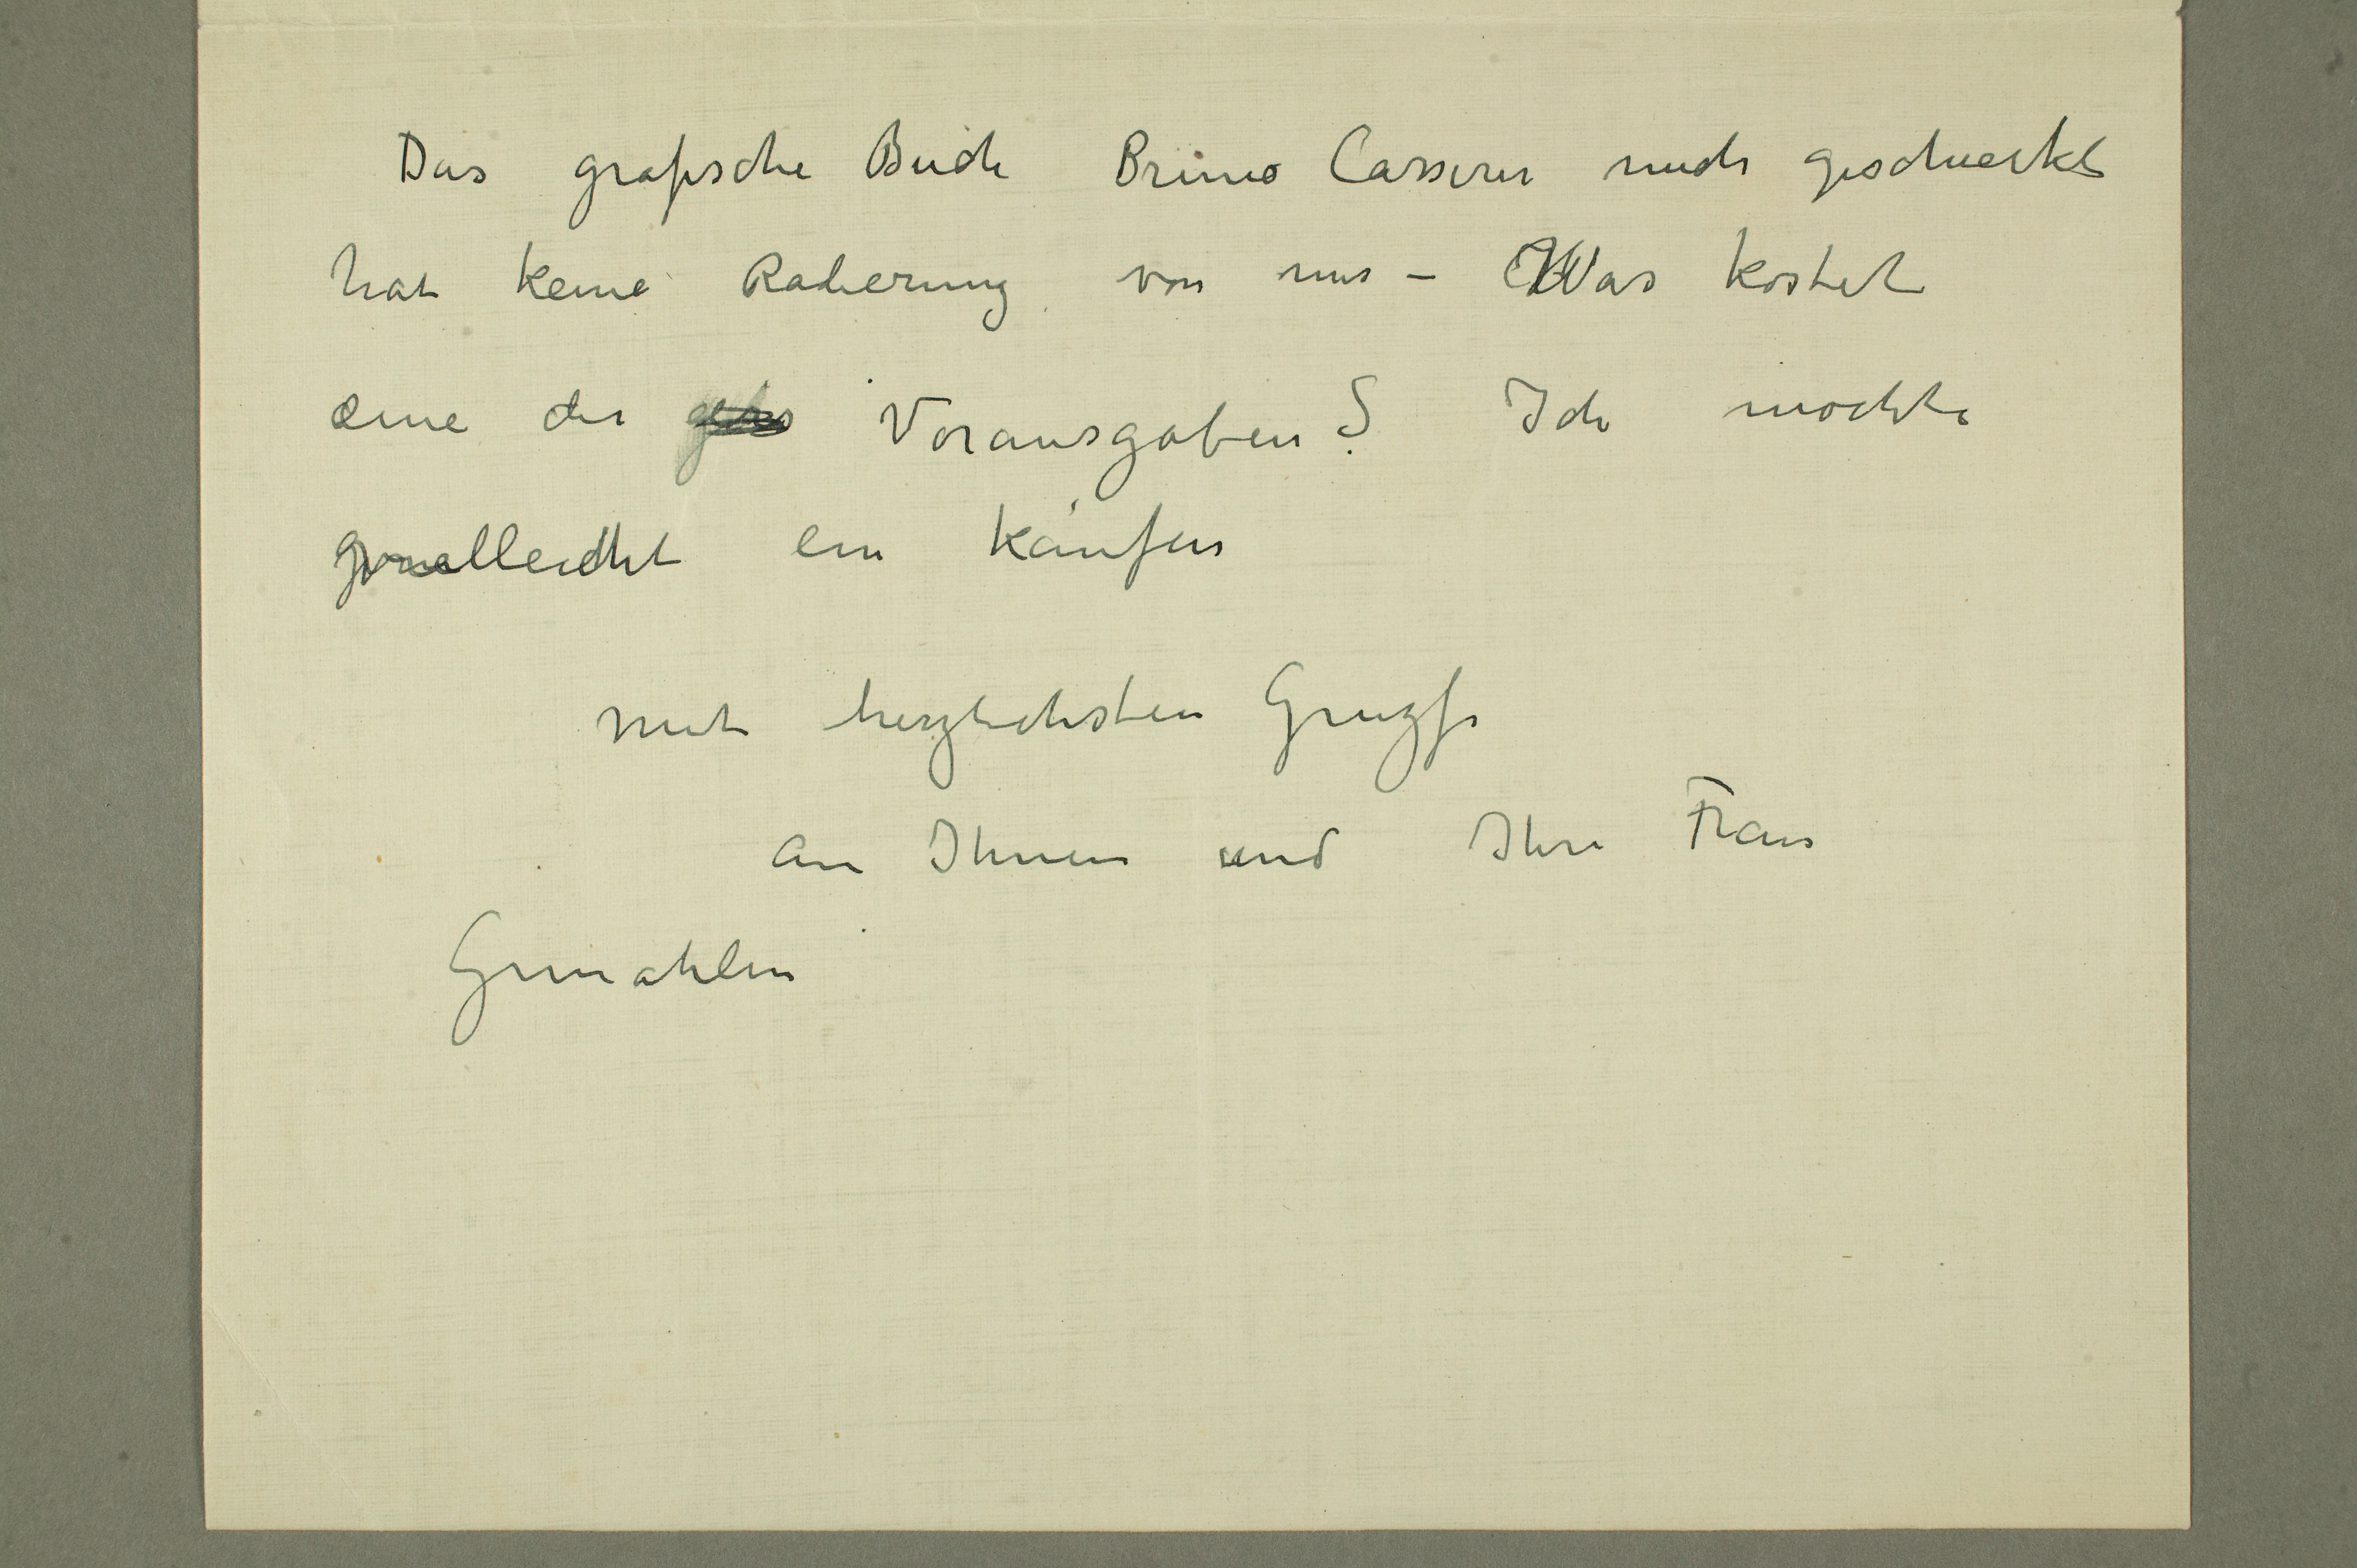 Das grafische Buch Bruno Cassirer mich geschenkt
hat keine Radierung von mir – Was kostet
eine der Vorausgaben? Ich möchte
vielleicht ein kaüfen
mit herzlichsten Gruzse
an Ihnen und Ihre Frau
Gemahlin